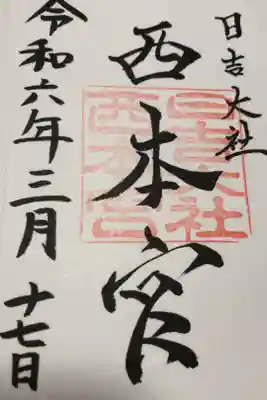 日吉大社
西本宮
日吉大社
西本宮
令和六年三月
十七日